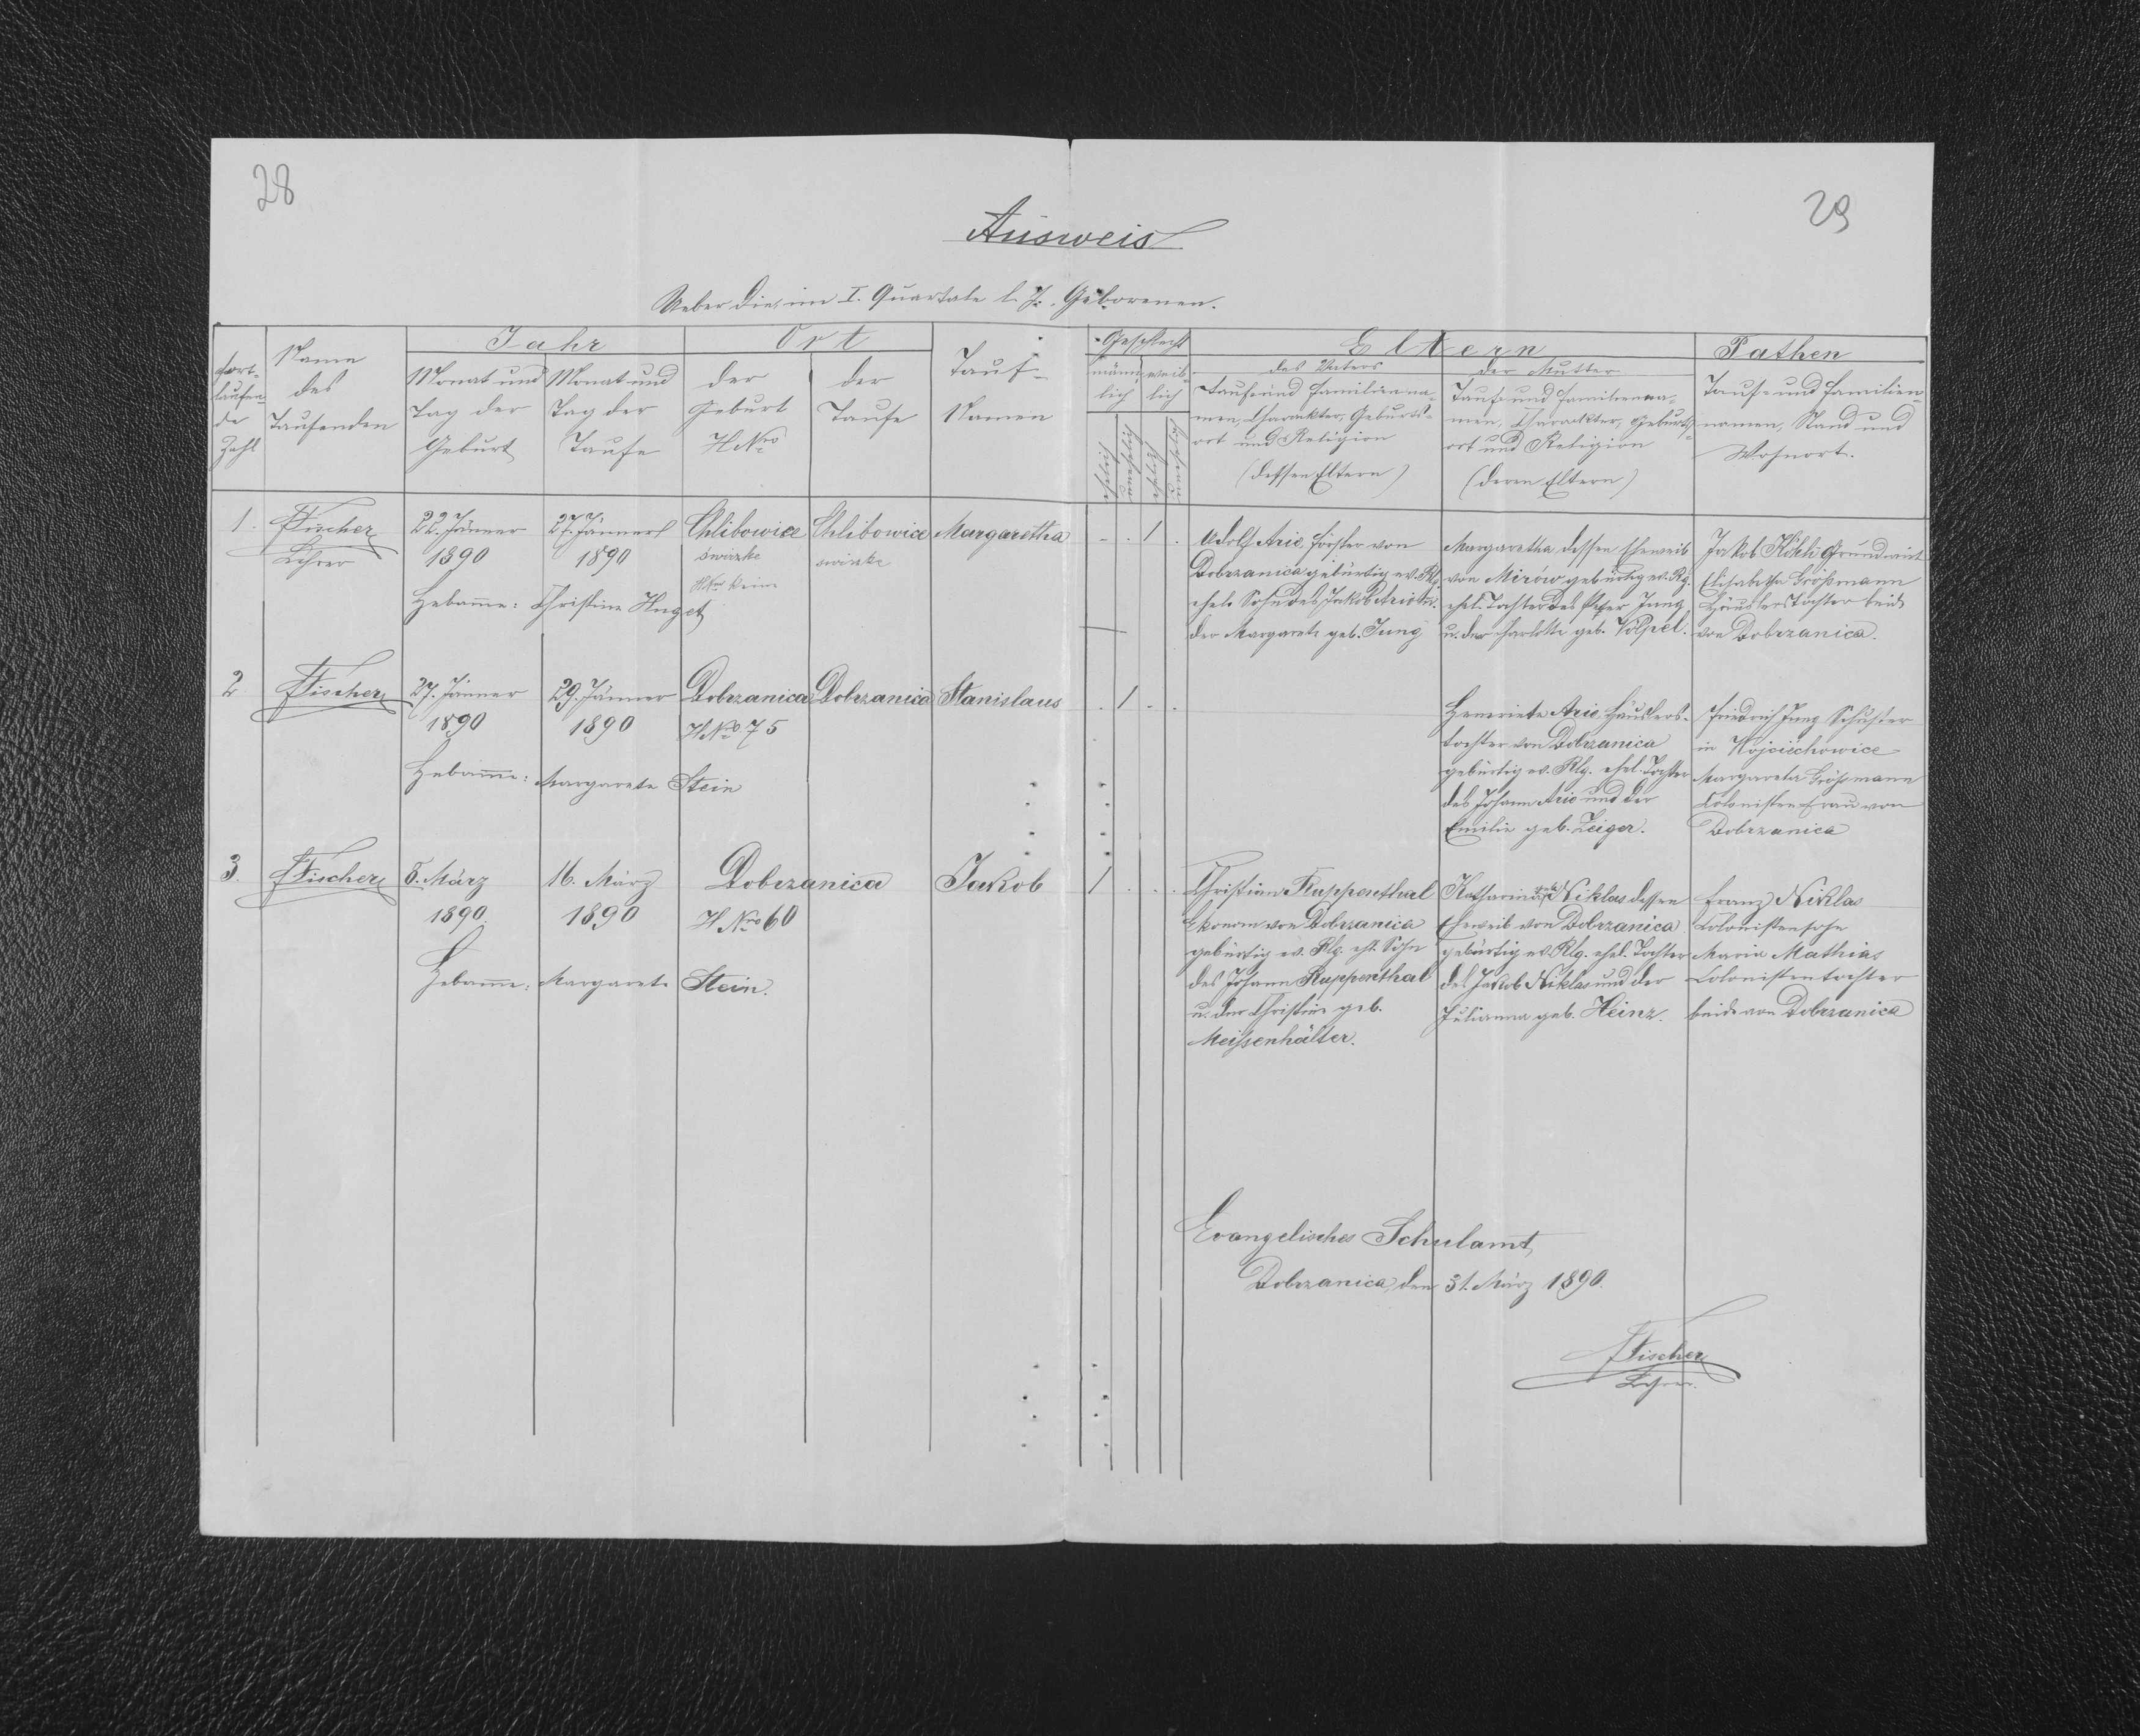 28
29
Ausweis
Ueber die, im I. Quartale l. J. Geborenen.
Fort-
laufen-
de
Zahl
Name
des
Taufenden
Jahr
Monat und
Tag der
Geburt
Monat und
Tag der
Taufe
Ort
der
Geburt
H Nro
der
Taufe
Tauf-
Namen
Geschlecht
männ-
lich
weib-
lich
ehelich
unehelich
ehelich
unehelich
Eltern
des Vaters
Tauf- und Familienna-
men, Charakter, Geburts-
ort und Religion
(dessen Eltern)
der Mutter
Tauf- und Familienna-
men, Charakter, Geburts-
ort und Religion
(deren Eltern)
Pathen
Tauf- und Familien-
namen, Stand und
Wohnort.
1.
Fischer
Lehrer
22. Jänner
1890
27. Jänner
1890
Hebamme: Christine Huget
Chlibowice
świrzkie
H Nro keine
Chlibowice
świrzkie
Margaretha
- . 1 .
Adolf Arie, Förster von
Dobrzanica gebürtig ev. Rlg
ehel. Sohn des Jakob Arie u.
der Margarete geb. Jung
Margaretha dessen Eheweib
von Mirów gebürtig ev. Rg.
ehel. Tochter des Peter Jung
u. der Charlotte geb. Völpel.
Jakob Köhli Grundwirt
Elisabetha Größmann
Häuslerstochter beide
von Dobrzanica.
2
Fischer
27. Jänner
1890
29. Jänner
1890
Hebamme: Margarete Stein
Dobrzanica
H Nro 75
Dobrzanica
Stanislaus
. 1 . .
Henriete Arie, Häuslers-
tochter von Dobrzanica
gebürtig ev. Rlg. ehel. Tochter
des Johann Arie und der
Emilie geb. Zeiger.
Friedrich Jung Schuster
in Wojciechowice
Margareta Größmann
Colonisten Frau von
Dobrzanica
3.
Fischer
8. März
1890.
16. März
1890
Hebamme: Margarete Stein.
Dobrzanica
H Nro 60
Jakob
1 . . .
Christian Ruppenthal
Ekonom von Dobrzanica
gebürtig ev. Rlg. eh. Sohn
des Johann Ruppenthal
u. der Christine geb.
Meißenhälter.
Katharina geb. Niklas dessen
Eheweib von Dobrzanica
gebürtig ev. Rlg. ehel. Tochter
des Jakob Niklas und der
Julianna geb. Heinz.
Franz Niklas
Colonistensohn
Maria Mathias
Colonistentochter
beide von Dobrzanica
Evangelisches Schulamt
Dobrzanica, den 31. März 1890.
Fischer
Lehrer.